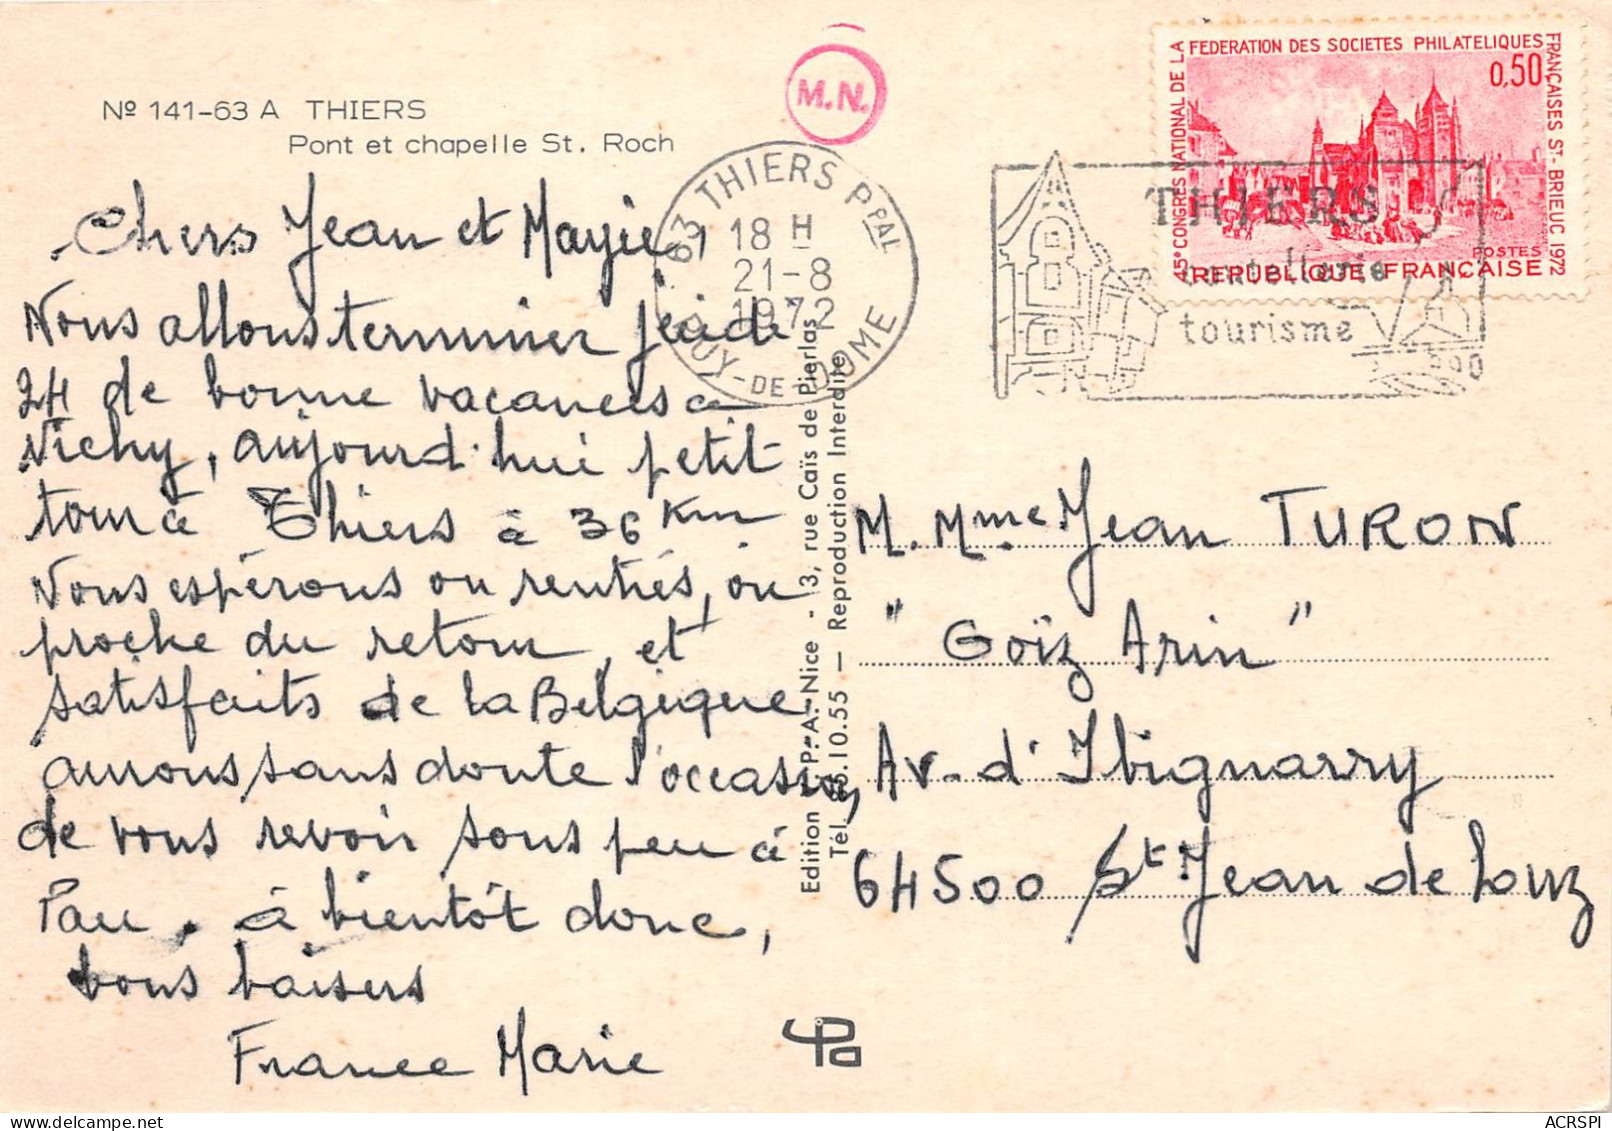 Nº 141-63 A THIERS
Pont et chapelle St. Roch
Chers Jean et Mayie,
Nous allons terminer jeudi
24 de bonne vacances à
Vichy, aujourd'hui petit
tour à Thiers à 36 Km
Nous espérons ou rentrés, ou
proche du retour, et
satisfaits de la Belgique
aurons sans doute l'occasion
de vous revoir sous peu à
Pau. à bientôt donc,
bons baisers
France Marie
M.N.
63 THIERS PPAL
18 H
21-8
1972
PUY-DE-DOME
THIERS
coutellerie
tourisme
45e CONGRES NATIONAL DE LA FEDERATION DES SOCIETES PHILATELIQUES FRANÇAISES ST-BRIEUC 1972
0,50
POSTES
REPUBLIQUE FRANÇAISE
Edition P.A. Nice - 3, rue Caïs de Pierlas
Tél. 85.10.55 — Reproduction Interdite
M. Mme Jean TURON
"Goïz Arin"
Av. d'Ibignarry
64500 St Jean de Luz
pa
ACRSPI